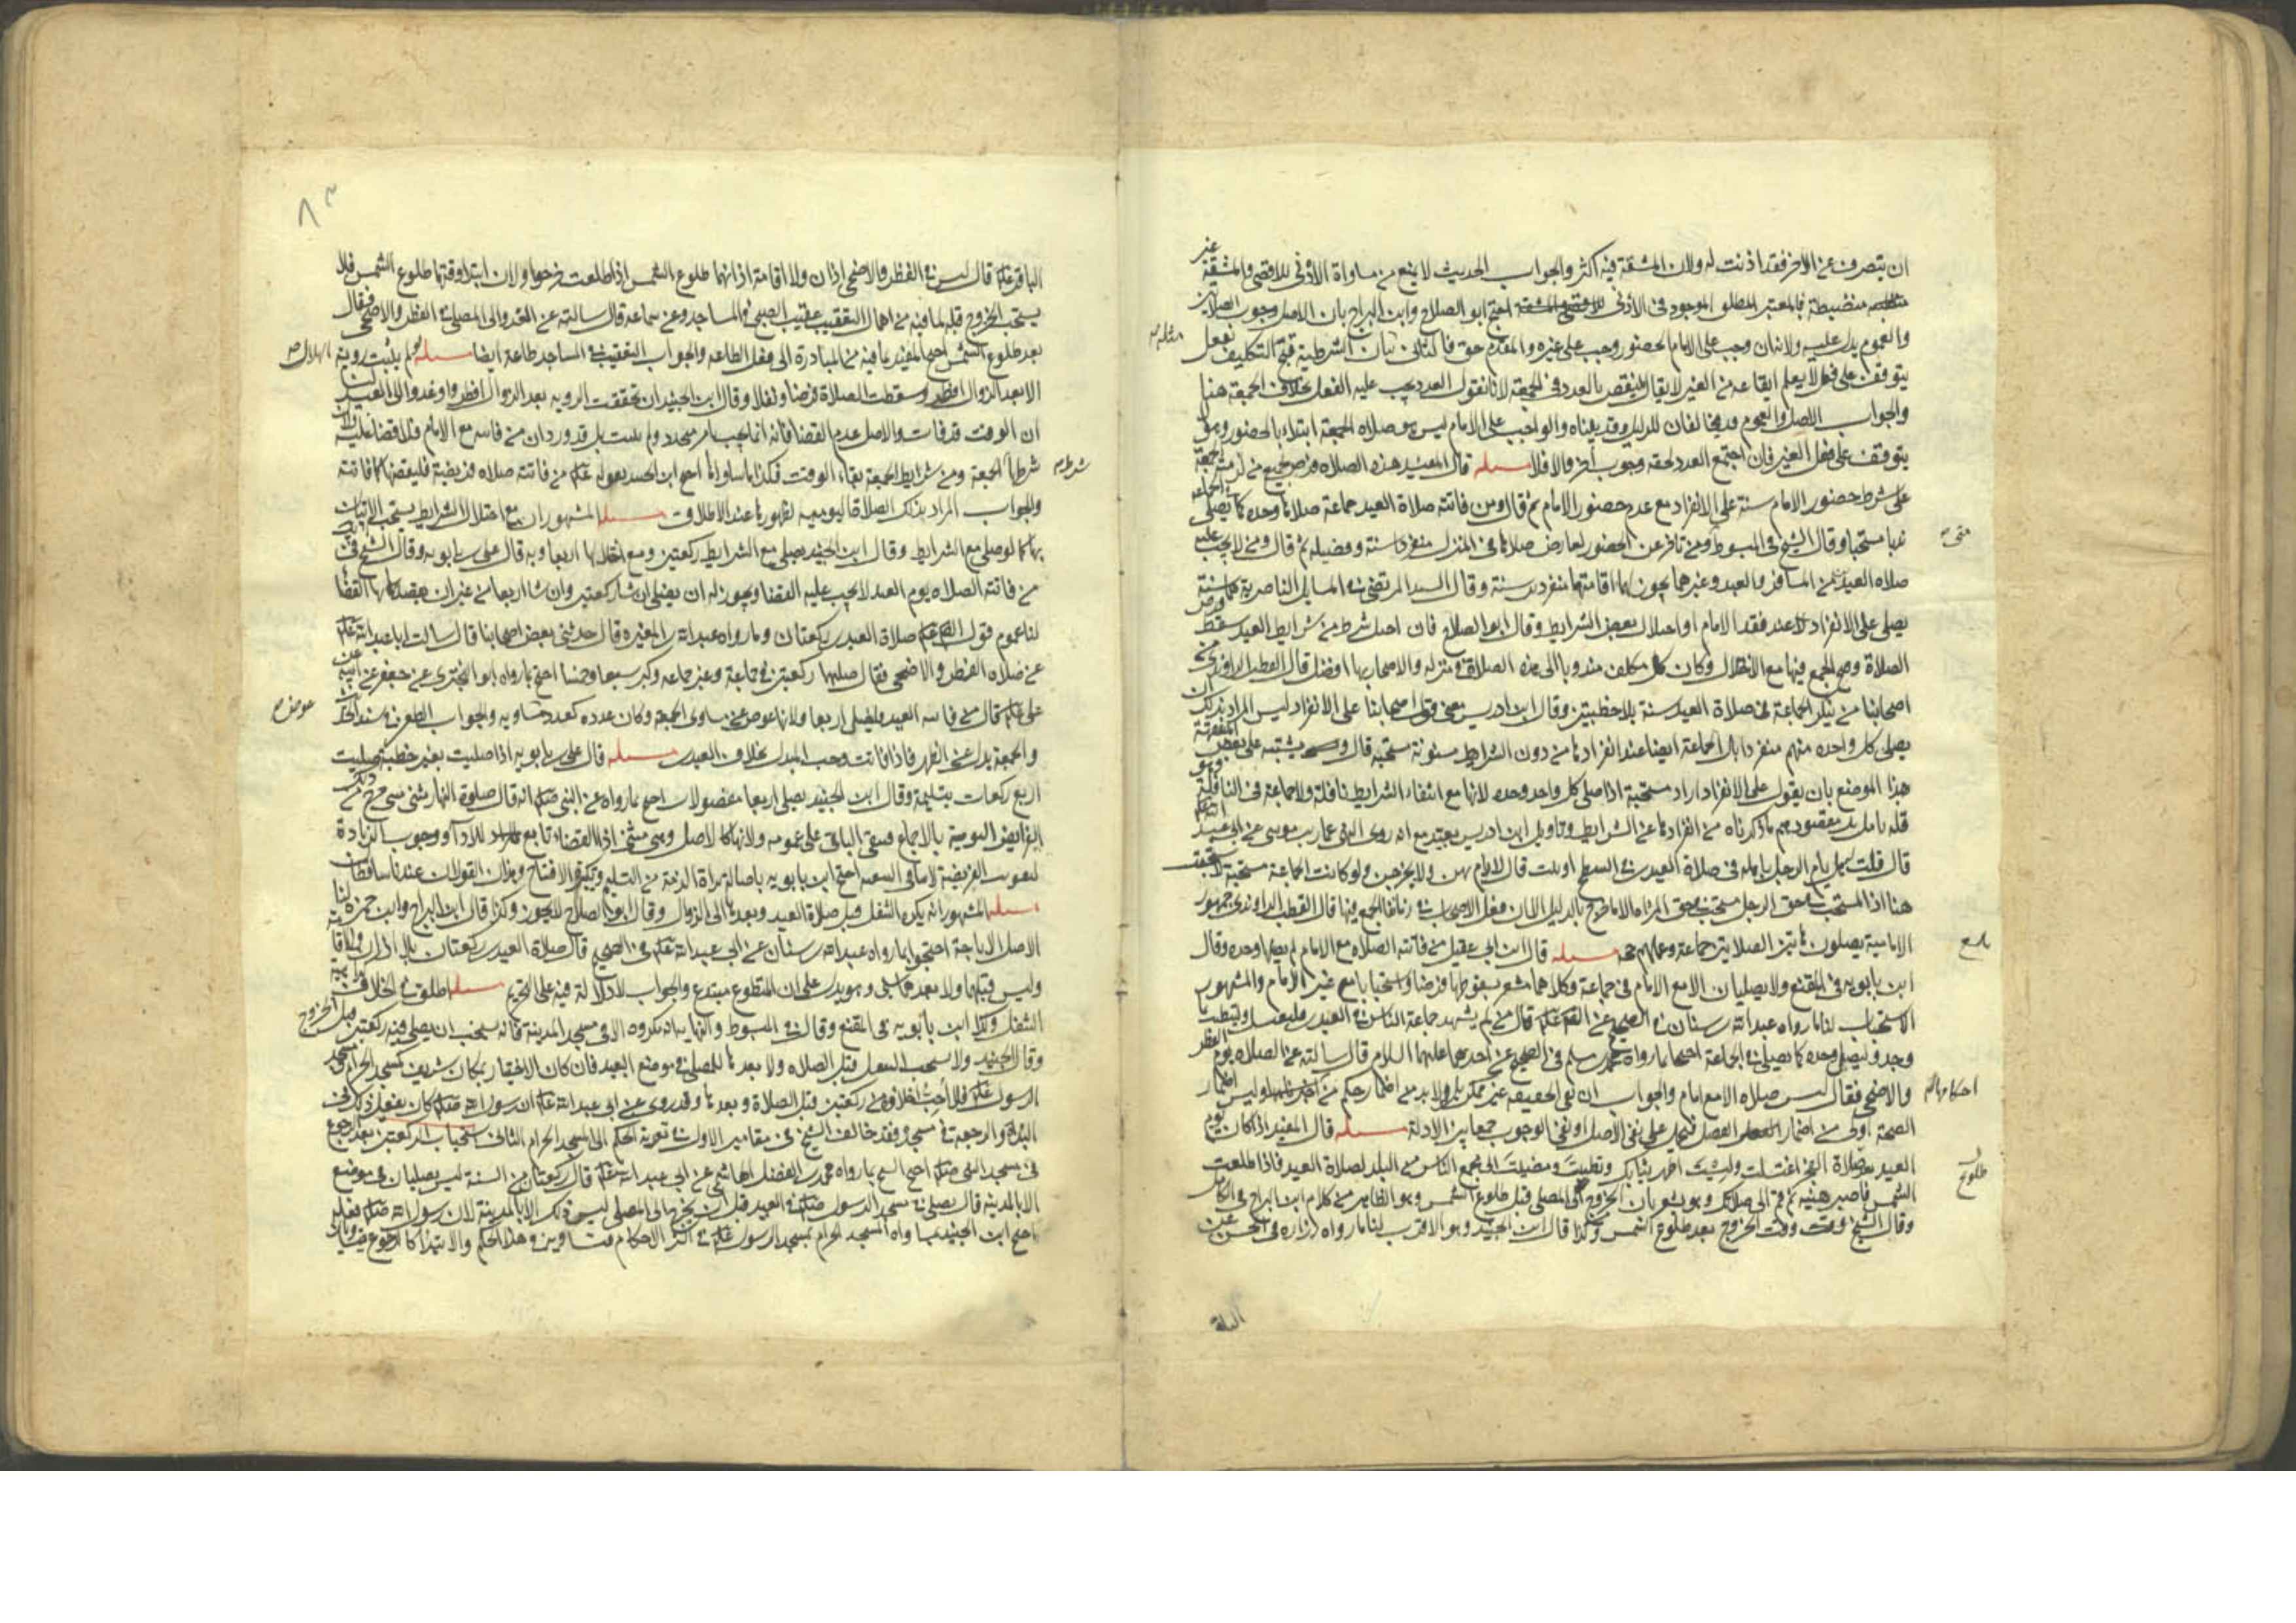 ان يتصرف عن الاخر فقد اذنت له ولان المشقة فيه اكثر والجواب الحديث لا يمنع من مساواة الادنى للاقصى والمشقة غير
منضبطة فالمعتبر المطلق الموجود في الادنى احتج ابو الصلاح وابن البراج بان الاصل وجوب الصلاتين
والعموم يدل عليه ولانه ان وجب على الامام الحضور وجب على غيره والمقدم حق فالتالي بيان الشرطية قبح التكليف بفعل
يتوقف على فعل لا يعلم ايقاعه من الغير لا يقال ينتقض بالعدد في الجمعة لانا نقول العدد يجب عليه الفعل بخلاف الجمعة هنا
والجواب الاصل والعموم قد يخالفان للدليل وقد بيناه والواجب على الامام ليس هو صلاة الجمعة ابتداء بالحضور وهو
يتوقف على فعل الغير فان اجتمع العدد لحقه وجوب اخر والا فلا مسئله قال المفيد هذه الصلاة فرض لجميع من لزمته الجمعة
على شرط حضور الامام سنة على الانفراد مع عدم حضور الامام ثم قال ومن فاتته صلاة العيد جماعة صلاها وحده كما يصلي الجماعة
ندبا مستحبا وقال الشيخ في المبسوط ومن تاخر عن الحضور لعارض صلاها في المنزل منفردا سنة وفضيلة ثم قال ومن لا يجب عليه
صلاة العيد من المسافر والعبد وغيرهما يجوز لهما اقامتها منفردين سنة وقال السيد المرتضى في المسايل الناصرية هما سنة
يصلي على الانفراد عند فقد الامام او اختلال بعض الشرايط وقال ابو الصلاح فان اختل شرط من شرايط العيد سقط فرض
الصلاة وقبح الجمع فيها مع الاختلال وكان كل مكلف مندوبا الى هذه الصلاة في منزله والاصحار بها افضل قال القطب الراوندي من
اصحابنا من ينكر الجماعة في صلاة العيد سنة بلا خطبتين وقال ابن ادريس معنى قول اصحابنا على الانفراد ليس المراد بذلك ان
يصلي كل واحد منهم منفردا بل الجماعة ايضا عند انفرادها من دون الشرايط مسنونة مستحبة قال ويشتبه على بعض المتفقهة
هذا الموضع بان يقول على الانفراد اراد مستحبة اذا صلى كل واحد وحده لانها مع انتفاء الشرايط نافلة ولا جماعة في النافلة وهو
قلة تامل بل مقصودهم ما ذكرناه من انفرادها عن الشرايط وتاويل ابن ادريس بعيد مع انه روى عمار بن موسى عن ابي عبد الله
قال قلت له هل يام الرجل باهله في صلاة العيدين في السطح او بيت قال لا يام بهن ولا يخرجن ولو كانت الجماعة مستحبة
هنا اذ المستحب في حق الرجل مستحب في حق المراة الا ما خرج بالدليل الا ان فعل الاصحاب في زماننا الجمع فيها قال القطب الراوندي جمهور
الامامية يصلون هاتين الصلاتين جماعة وعملهم حجة مسئله قال ابن ابي عقيل من فاتته الصلاة مع الامام لم يصلها وحده وقال
ابن بابويه في المقنع ولا يصليان الا مع الامام في جماعة وكلاهما مشعر بسقوطها فرضا واستحبابا مع غير الامام والمشهور
الاستحباب لنا ما رواه عبد الله بن سنان في الصحيح عن الصادق قال من لم يشهد جماعة الناس في العيدين فليغتسل وليتطيب بما
وجد وليصل وحده كما يصلي في الجماعة احتجا بما رواه محمد بن مسلم في الصحيح عن احدهما عليهما السلام قال سالته عن الصلاة يوم الفطر
والاضحى فقال ليس صلاة الا مع امام والجواب ان نفي الحقيقة غير ممكن بل ولا بد من اضمار حكم من وليس اضمار
الصحة اولى من اضمار الفضل فيحمل على نفي الاصل او نفي الوجوب جمعا بين الادلة مسئله قال المفيد اذا كان يوم
العيد بعد صلاة الفجر اغتسلت ولبست اطهر ثيابك وتطيبت ومضيت الى مجمع الناس من البلد لصلاة العيد فاذا طلعت
الشمس فاصبر هنيئة ثم قم الى صلاتك وهو يشعر بان الخروج الى المصلى قبل طلوع الشمس وهو الظاهر من كلام ابن البراج في الكامل
وقال الشيخ وقت الخروج بعد طلوع الشمس وكذا قال ابن الجنيد وهو الاقرب لنا ما رواه زرارة في الحسن عن
الباقر قال ليس في الفطر والاضحى اذان ولا اقامة اذانهما طلوع الشمس اذا طلعت خرجوا ولان ابتدا وقتها طلوع الشمس فلا
يستحب الخروج قبله لما فيه من اهمال التعقيب عقيب الصبح في المساجد وعن سماعة قال سالته عن الغدو الى المصلى في الفطر والاضحى فقال
بعد طلوع الشمس احتج المفيد بما فيه من المبادرة الى فعل الطاعة والجواب التعقيب في المساجد طاعة ايضا مسئله لو لم يثبت روية الهلال
الا بعد الزوال افطر وسقطت الصلاة فرضا ونفلا وقال ابن الجنيد ان تحققت الروية بعد الزوال افطروا وغدوا الى العيد لنا
ان الوقت قد فات والاصل عدم القضا فانه انما يجب بامر متجدد ولم يثبت بل قد ورد ان من فاتته مع الامام فلا قضا عليه ولان
شرطها الجمعة ومن شرايط الجمعة بقاء الوقت فكذا ما ساواها احتج ابن الجنيد بعموم قوله من فاتته صلاة فريضة فليقضها كما فاتته
والجواب المراد بذلك الصلاة اليومية لظهورها عند الاطلاق مسئله المشهور ان مع اختلال الشرايط يستحب الاتيان
بها كما لو صلى مع الشرايط وقال ابن الجنيد يصلي مع الشرايط ركعتين ومع اختلالها اربعا وبه قال علي بن بابويه وقال الشيخ في
من فاتته الصلاة يوم العيد لا يجب عليه القضا ويجوز له ان يصلي ان شا ركعتين وان شا اربعا من غير ان يقصد بها القضا
لنا عموم قول الصادق صلاة العيدين ركعتان وما رواه عبد الله بن المغيرة قال حدثني بعض اصحابنا قال سالت ابا عبد الله
عن صلاة الفطر والاضحى فقال صلهما ركعتين في جماعة وغير جماعة وكبر سبعا وخمسا احتج بما رواه ابو البختري عن جعفر عن ابيه عن
علي قال من فاتته العيد فليصل اربعا ولانها عوض عن مساوي الجمعة وكان عدده كعدد مساويه والجواب الطعن في سند الخبر
والجمعة بدل عن الظهر فاذا فاتت وجب المبدل بخلاف العيدين مسئله قال علي بن بابويه اذا صليت بغير خطبة صليت
اربع ركعات بتسليمة وقال ابن الجنيد يصلي اربعا مفصولات احتج بما رواه عن النبي انه قال صلوة النهار مثنى مثنى خرج من ذلك
الفرايض اليومية بالاجماع فبقي الباقي على عمومه ولانها كالاصل وهي مثنى اذ القضاء تابع للاداء ووجوب الزيادة
احتج ابن بابويه باصالة براة الذمة من التسليم وتكبيرة الافتتاح وهذان القولان عندنا ساقطان
مسئله المشهور انه يكره التنفل قبل صلاة العيد وبعدها الى الزوال وقال ابو الصلاح لا يجوز وكذا قال ابن البراج وابن حمزة لنا
الاصل الاباحة احتجوا بما رواه عبد الله بن سنان عن ابي عبد الله في الصحيح قال صلاة العيدين ركعتان بلا اذان ولا اقامة
وليس قبلهما ولا بعدهما شي وهو يدل على ان المتطوع مبتدع والجواب لا دلالة فيه على التحريم مسئله اطلق في الخلاف كراهية
التنفل وكذا ابن بابويه في المقنع وقال في المبسوط والنهاية انه مكروه الا في مسجد المدينة فانه يستحب ان يصلي فيه ركعتين قبل الخروج
وقال ابن الجنيد ولا يستحب التنفل قبل الصلاة ولا بعدها للمصلي في موضع العيد فان كان الاختيار بمكان شريف كمسجد الحرام ومسجد
الرسول فلا احب اخلاؤه من ركعتين قبل الصلاة وبعدها وقد روي عن ابي عبد الله ان رسول الله كان يفعل ذلك في
البداة والرجعة في مسجده فقد خالف الشيخ في مقامين الاول في تعدية الحكم الى المسجد الحرام الثاني استحباب الركعتين بعد الرجوع
في مسجد النبي احتج الشيخ بما رواه محمد بن الفضل الهاشمي عن ابي عبد الله قال ركعتان من السنة ليس يصليان في موضع
الا بالمدينة قال يصلي في مسجد الرسول في العيد قبل ان يخرج الى المصلى ليس ذلك الا بالمدينة لان رسول الله فعله
احتج ابن الجنيد بمساواة المسجد الحرام بمسجد الرسول في اكثر الاحكام فتساويه في هذا الحكم والابتدا كالرجوع